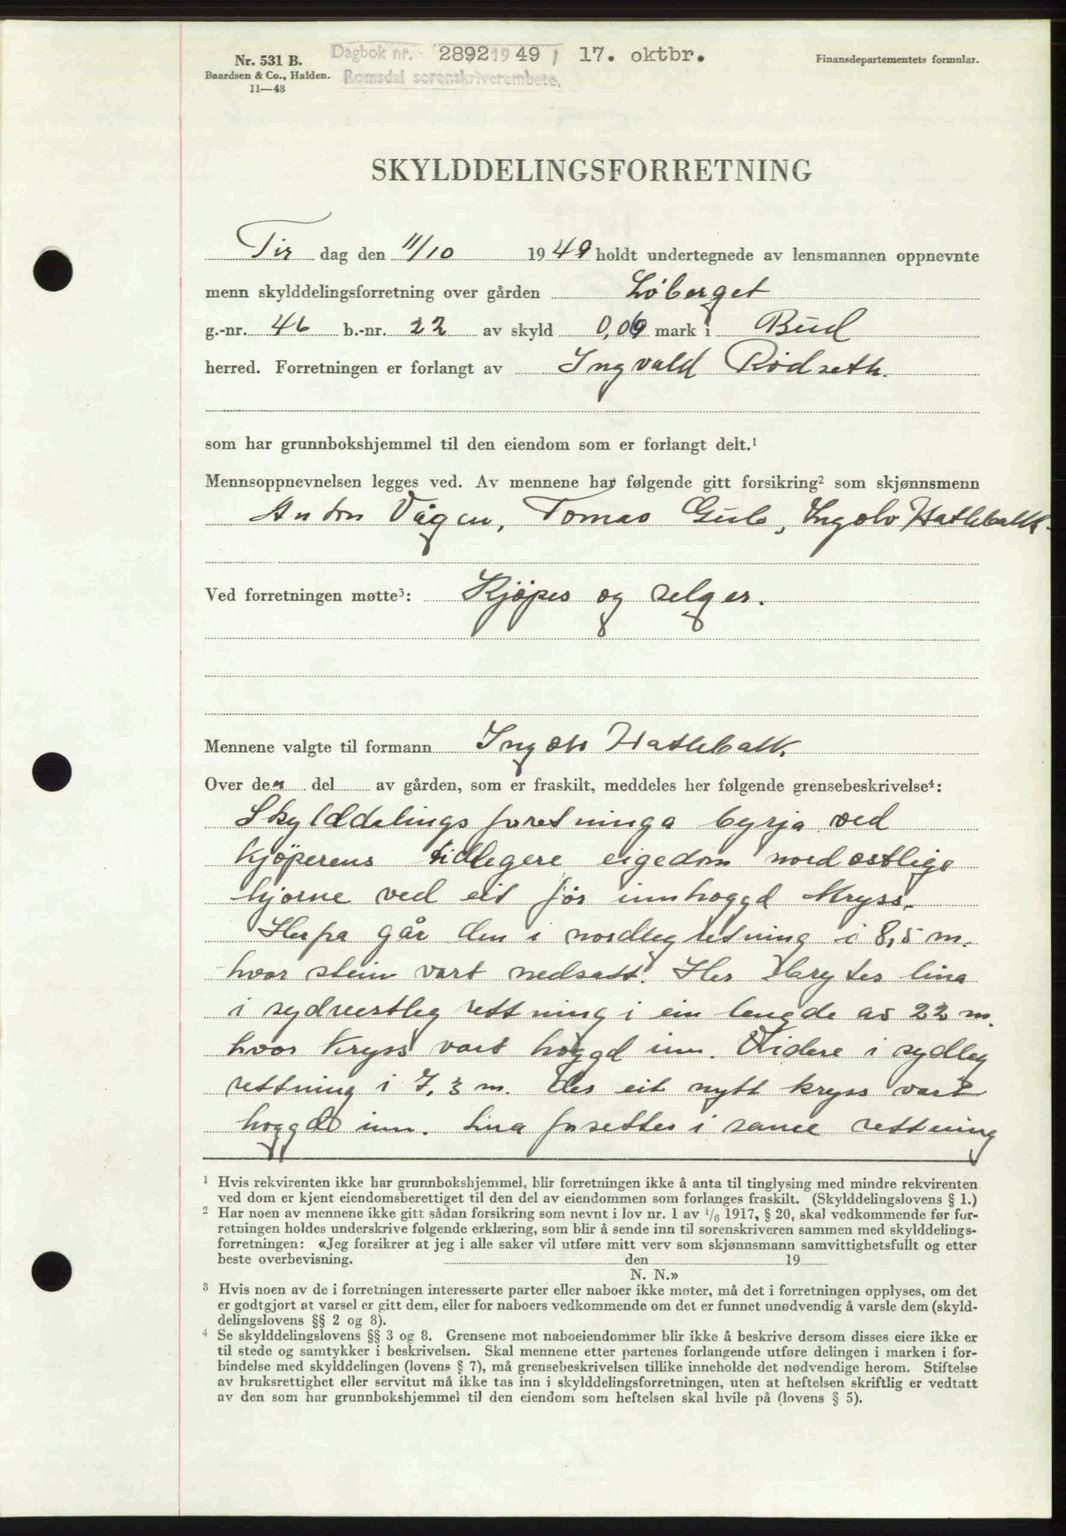 Nr. 531 B.
Baardsen & Co., Halden.
11—48
Dagbok nr. 2892 1949 / 17. oktbr.
Romsdal sorenskriverembete.
Finansdepartementets formular.
SKYLDDELINGSFORRETNING
Tirdag den 11/10 1949 holdt undertegnede av lensmannen oppnevnte
menn skylddelingsforretning over gården Løberget
g.-nr. 46 b.-nr. 22 av skyld 0,09 mark i Bud
herred. Forretningen er forlangt av Ingvald Rødseth.
som har grunnbokshjemmel til den eiendom som er forlangt delt.¹
Mennsoppnevnelsen legges ved. Av mennene har følgende gitt forsikring² som skjønnsmenn
Anton Vågen, Tomas Gule, Ingolv Hatlebakk.
Ved forretningen møtte³: Kjøpes og selger.
Mennene valgte til formann Ingolv Hatlebakk.
Over den del av gården, som er fraskilt, meddeles her følgende grensebeskrivelse⁴:
Skylddelings forretninga byrja ved
kjøperens tidlegere eigedom nordostlige
hjørne ved eit før innhoggd kryss.
Herfra går den i nordleg retning i 8,5 m.
hvor stein vart nedsatt. Her brytes lina
i sydvestleg rettning i ein lengde av 22 m.
hvor kryss vart hoggd inn. Videre i sydleg
rettning i 7,3 m. der eit nytt kryss vart
hoggd inn. Lina forsettes i same rettning
¹ Hvis rekvirenten ikke har grunnbokshjemmel, blir forretningen ikke å anta til tinglysing med mindre rekvirenten
ved dom er kjent eiendomsberettiget til den del av eiendommen som forlanges fraskilt. (Skylddelingslovens § 1.)
² Har noen av mennene ikke gitt sådan forsikring som nevnt i lov nr. 1 av 1/6 1917, § 20, skal vedkommende før for-
retningen holdes underskrive følgende erklæring, som blir å sende inn til sorenskriveren sammen med skylddelings-
forretningen: «Jeg forsikrer at jeg i alle saker vil utføre mitt verv som skjønnsmann samvittighetsfullt og etter
beste overbevisning. den 19
N. N.»
³ Hvis noen av de i forretningen interesserte parter eller naboer ikke møter, må det i forretningen opplyses, om det
er godtgjort at varsel er gitt dem, eller for naboers vedkommende om det er funnet unødvendig å varsle dem (skyld-
delingslovens §§ 2 og 8).
⁴ Se skylddelingslovens §§ 3 og 8. Grensene mot naboeiendommer blir ikke å beskrive dersom disses eiere ikke er
til stede og samtykker i beskrivelsen. Skal mennene etter partenes forlangende utføre delingen i marken i for-
bindelse med skylddelingen (lovens § 7), må grensebeskrivelsen tillike inneholde det nødvendige herom. Stiftelse
av bruksrettighet eller servitut må ikke tas inn i skylddelingsforretningen, uten at heftelsen skriftlig er vedtatt
av den som har grunnbokshjemmel til den eiendom som heftelsen skal hvile på (lovens § 5).